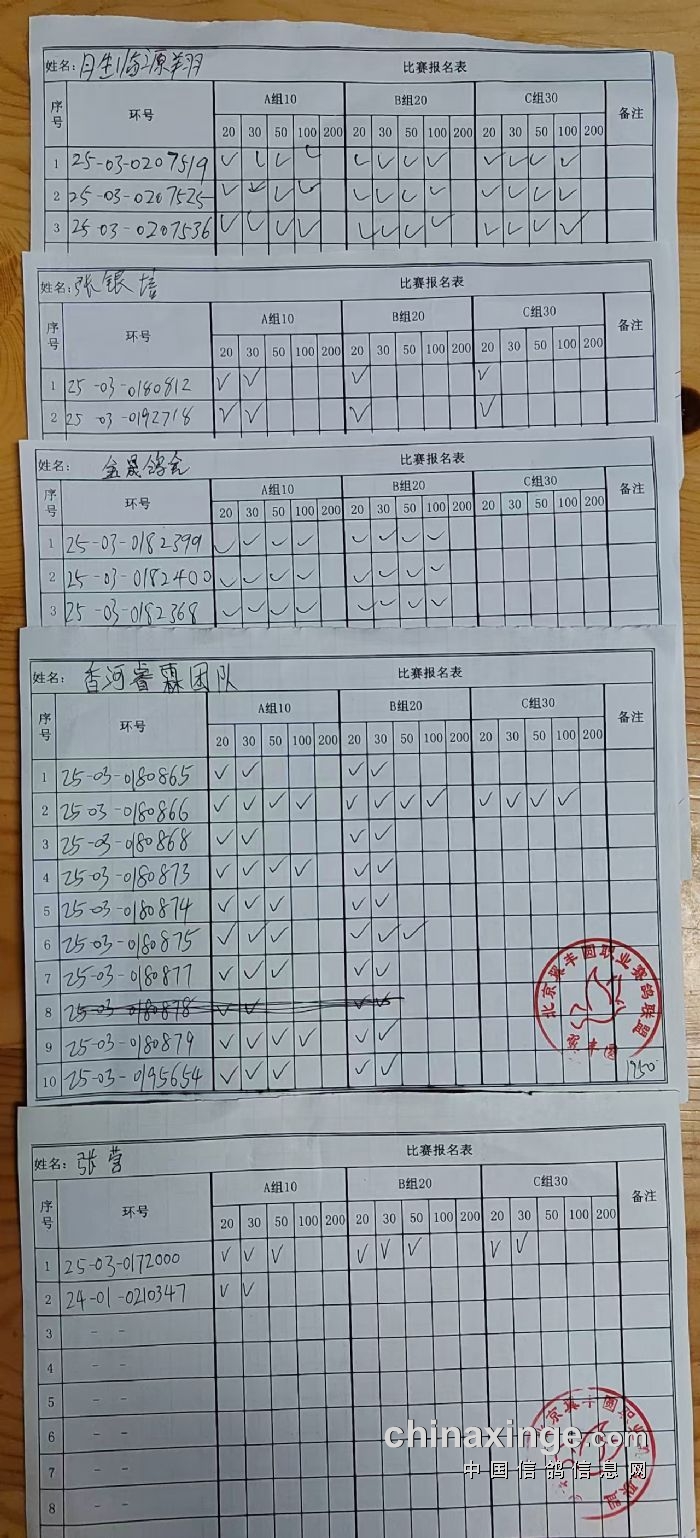 姓名: 月生临源翔 比赛报名表
序号 环号 A组10 B组20 C组30 备注
20 30 50 100 200 20 30 50 100 200 20 30 50 100 200
1 25-03-0207519 ✓ ✓ ✓ ✓ ✓ ✓ ✓ ✓ ✓ ✓ ✓ ✓
2 25-03-0207525 ✓ ✓ ✓ ✓ ✓ ✓ ✓ ✓ ✓ ✓ ✓ ✓
3 25-03-0207536 ✓ ✓ ✓ ✓ ✓ ✓ ✓ ✓ ✓ ✓ ✓ ✓
姓名: 张银培 比赛报名表
序号 环号 A组10 B组20 C组30 备注
20 30 50 100 200 20 30 50 100 200 20 30 50 100 200
1 25-03-0180812 ✓ ✓ ✓ ✓
2 25 03-0192718 ✓ ✓ ✓ ✓
姓名: 金晟鸽舍 比赛报名表
序号 环号 A组10 B组20 C组30 备注
20 30 50 100 200 20 30 50 100 200 20 30 50 100 200
1 25-03-0182399 ✓ ✓ ✓ ✓ ✓ ✓ ✓ ✓
2 25-03-0182400 ✓ ✓ ✓ ✓ ✓ ✓ ✓ ✓
3 25-03-0182368 ✓ ✓ ✓ ✓ ✓ ✓ ✓ ✓
姓名: 香河睿霖团队 比赛报名表
序号 环号 A组10 B组20 C组30 备注
20 30 50 100 200 20 30 50 100 200 20 30 50 100 200
1 25-03-0180865 ✓ ✓ ✓ ✓
2 25-03-0180866 ✓ ✓ ✓ ✓ ✓ ✓ ✓ ✓ ✓ ✓ ✓ ✓
3 25-03-0180868 ✓ ✓ ✓ ✓
4 25-03-0180873 ✓ ✓ ✓ ✓ ✓ ✓
5 25-03-0180874 ✓ ✓ ✓ ✓ ✓
6 25-03-0180875 ✓ ✓ ✓ ✓ ✓ ✓
7 25-03-0180877 ✓ ✓ ✓ ✓ ✓
8 25-03-0180878 ✓ ✓ ✓ ✓
9 25-03-0180879 ✓ ✓ ✓ ✓ ✓ ✓
10 25-03-0195654 ✓ ✓ ✓ ✓ ✓ 1950
北京翼丰圆职业赛鸽联盟
翼丰圆
姓名: 张营 比赛报名表
序号 环号 A组10 B组20 C组30 备注
20 30 50 100 200 20 30 50 100 200 20 30 50 100 200
1 25-03-0172000 ✓ ✓ ✓ ✓ ✓ ✓ ✓ ✓
2 24-01-0210347 ✓ ✓
3 - -
4 - -
5 - -
6 - -
7 - -
8 - -
chinaxinge.com
中国信鸽信息网